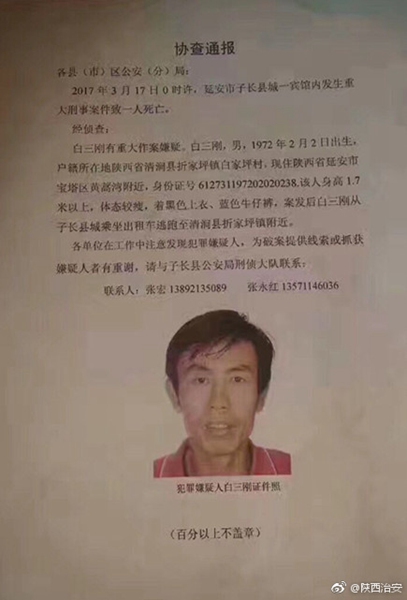 协查通报
各县（市）区公安（分）局：
2017 年 3 月 17 日 0 时许，延安市子长县城一宾馆内发生重
大刑事案件致一人死亡。
经侦查：
白三刚有重大作案嫌疑。白三刚，男，1972 年 2 月 2 日出生，
户籍所在地陕西省清涧县折家坪镇白家坪村，现住陕西省延安市
宝塔区黄蒿湾附近，身份证号 612731197202020238.该人身高 1.7
米以上，体态较瘦，着黑色上衣、蓝色牛仔裤，案发后白三刚从
子长县城乘坐出租车逃跑至清涧县折家坪镇附近。
各单位在工作中注意发现犯罪嫌疑人，为破案提供线索或抓获
嫌疑人者有重谢，请与子长县公安局刑侦大队联系：
联系人：张宏 13892135089 张永红 13571146036
犯罪嫌疑人白三刚证件照
（百分以上不盖章）
@陕西治安